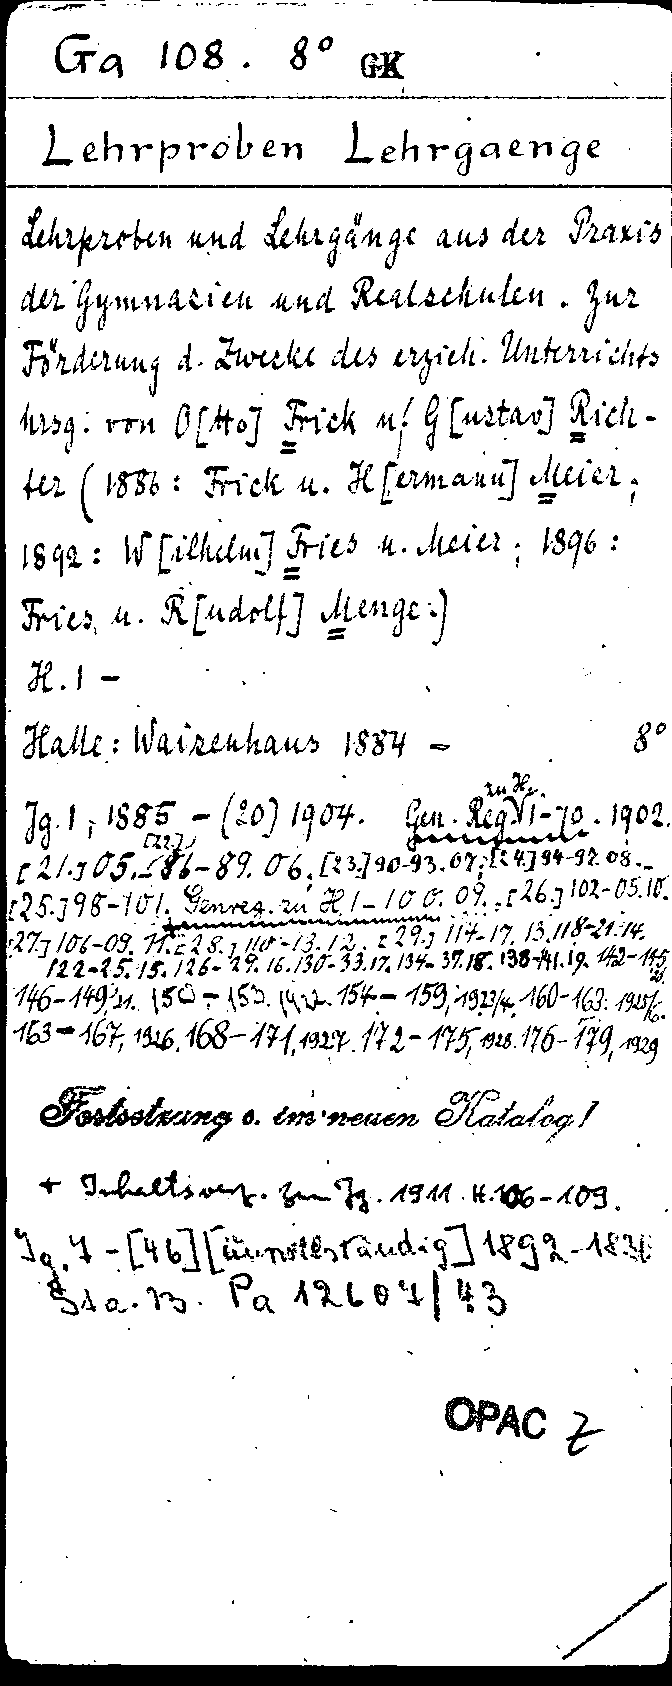 Ga 108. 8° GK
Lehrproben Lehrgaenge
Lehrproben und Lehrgänge aus der Praxis
der Gymnasien und Realschulen. Zur
Förderung d. Zwecke des erzieh. Unterrichts
hrsg. von O[tto] Frick u. G[ustav] Rich-
ter (1886: Frick u. H[ermann] Meier;
1892: W[ilhelm] Fries u. Meier; 1896:
Fries u. R[udolf] Menge.)
H. 1 -
Halle: Waisenhaus 1884 - 8°
zu H.
Jg. 1, 1885 - (20) 1904. Gen. Reg. 1-70. 1902.
[22.]
[21.] 05. - 86-89. 06. [23.] 90-93. 07. [24.] 94-97. 08. -
[25.] 98-101. Genreg. zu H. 1-100. 09. [26.] 102-05. 10.
[27.] 106-09. 11. [28.] 110-13. 12. [29.] 114-17. 13. 118-21. 14.
122-25. 15. 126-29. 16. 130-33. 17. 134-37. 18. 138-41. 19. 142-145
146-149, 21. 154-159, 1923/4. 160-163.
163-167, 1926. 168-171, 1927. 172-175, 1928. 176-179, 1929
Fortsetzung s. im neuen Katalog!
+ Inhaltsverz. zum Jg. 1911. H. 106-109.
Jg. 7-[46] [unvollständig] 1892-
Sta. B. Pa 12607/43
OPAC Z